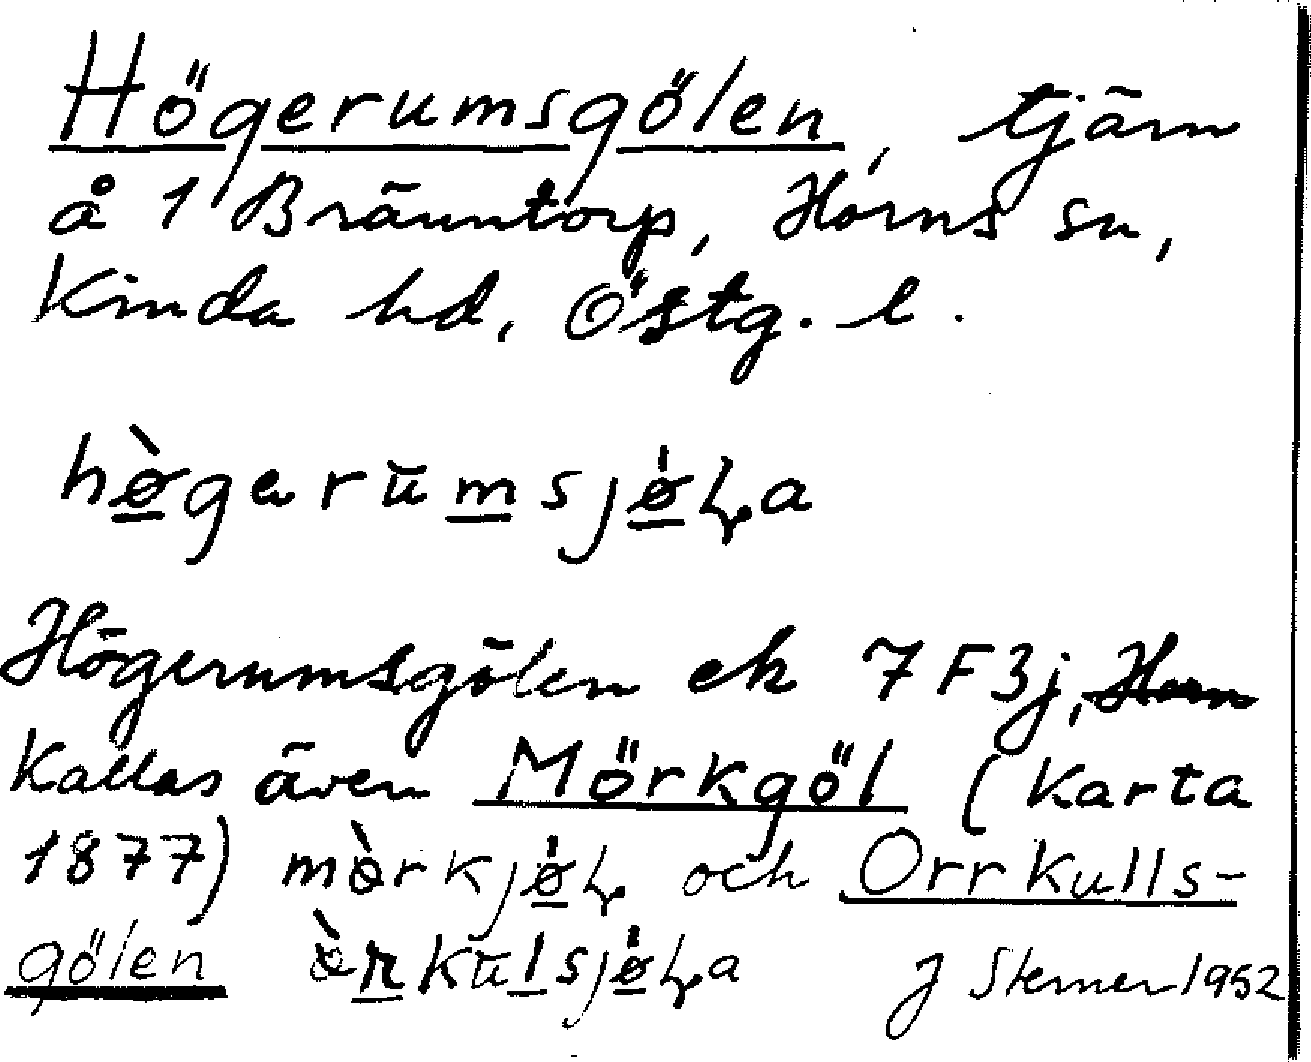 Högerumsgölen, tjärn
å 1 Bränntorp, Horns sn,
Kinda hd, Östg. l.
hø̀gerūmsjø̍ꞎa
Högerumsgölen ek 7F3j,
Kallas även Mörkgöl (Karta
1877) mòrkjø̍ꞎ och Orrkulls-
gölen òrkūlsjø̍ꞎa J Sterner 1952